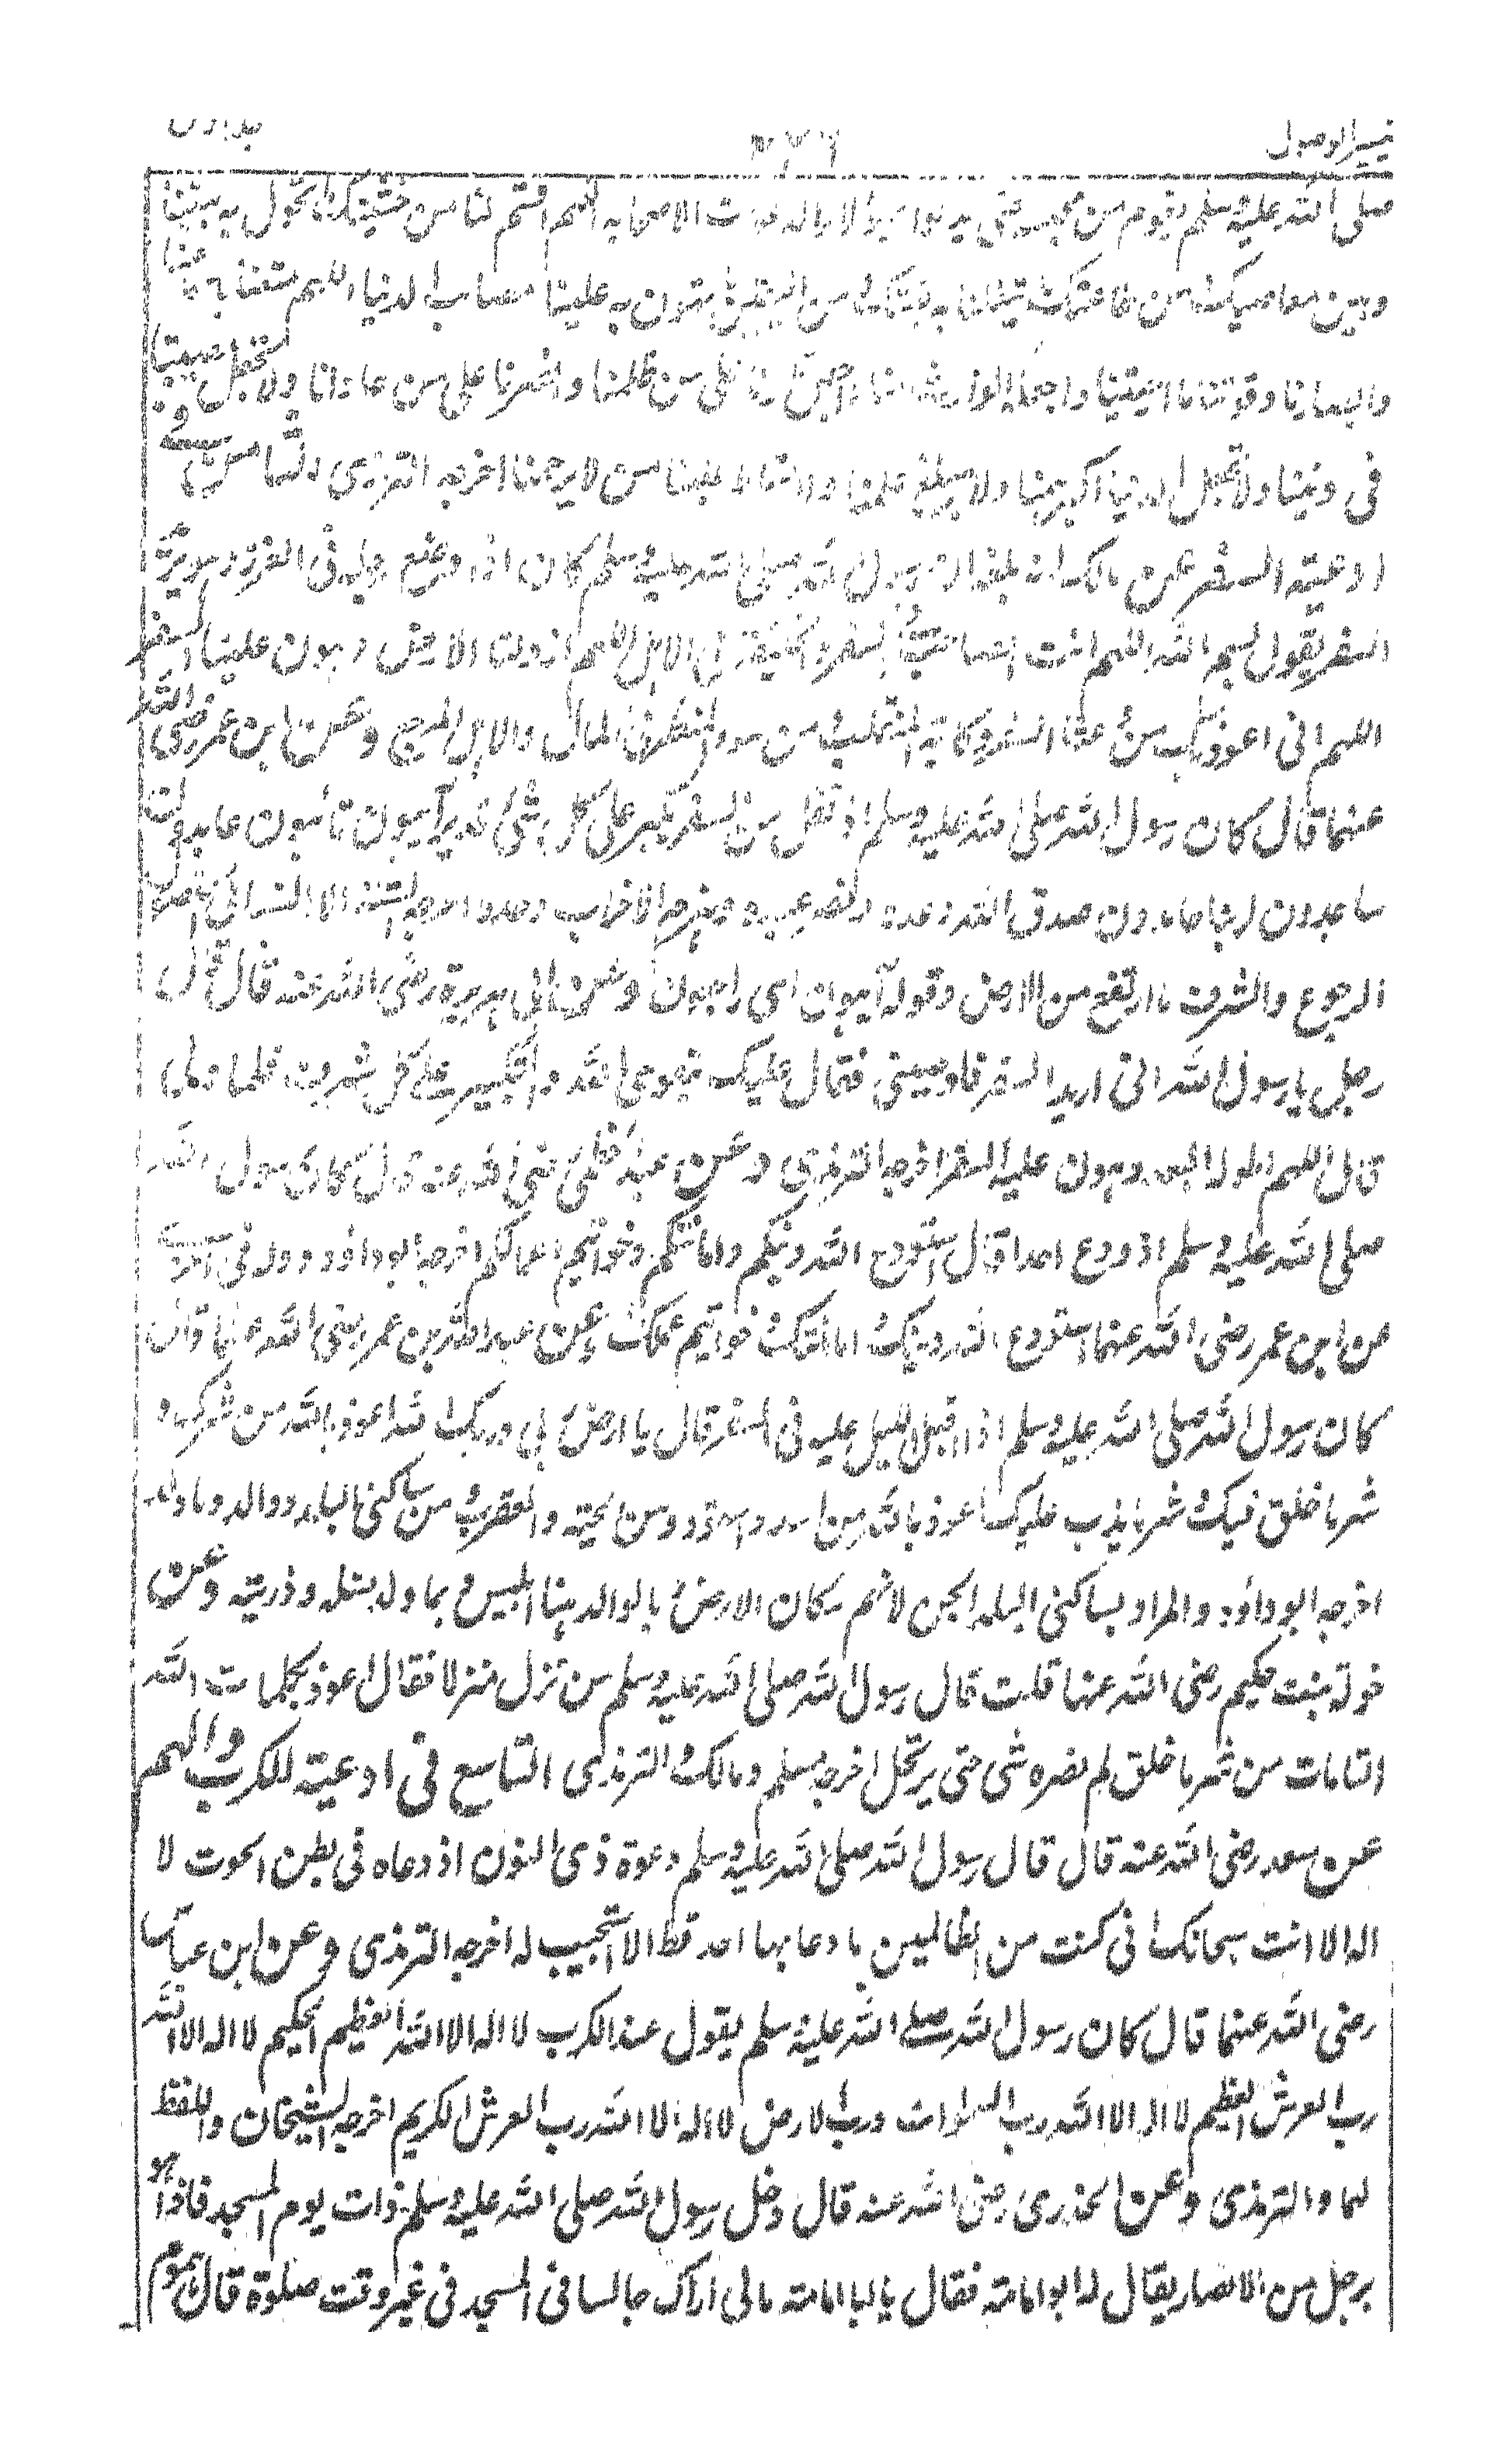 تيسير الوصول
صلى الله عليه وسلم يقوم من مجلس حتى يدعو الدعوات لاصحابه اللهم اقسم لنا من خشيتك ما تحول به بيننا
وبين معاصيك ومن طاعتك به من اليقين به علينا مصائب الدنيا اللهم متعنا
وابصارنا وقوتنا ما احييتنا واجعله الوارث منا على من ظلمنا وانصرنا على من عادانا ولا تجعل مصيبتنا
فى ديننا ولا تجعل الدنيا اكبر همنا ولا مبلغ علمنا ولا تسلط علينا من لا يرحمنا اخرجه الترمذى
ادعية السفر عن مالك انه بلغه ان رسول الله صلى الله عليه وسلم كان اذا وضع رجله فى الغرز وهو يريد
السفر يقول بسم الله اللهم انت الصاحب فى السفر والخليفة فى الاهل اللهم ازو لنا الارض وهون علينا السفر
اللهم انى اعوذ بك من وعثاء السفر وكابة المنقلب ومن سوء المنظر فى المال والاهل وعن ابن عمر رضى الله
عنهما قال كان رسول الله صلى الله عليه وسلم اذا قفل من السفر يكبر على كل آيبون تائبون عابدون
ساجدون لربنا حامدون صدق الله وعده ونصر عبده وهزم الاحزاب وحده اخرجه الستة الا النسائى
الرجوع والشرف ما ارتفع من الارض وقوله آيبون اى راجعون وعن ابى هريرة رضى الله عنه قال قال
رجل يا رسول الله انى اريد السفر فاوصنى فقال عليك بتقوى الله والتكبير على كل شرف فلما ولى
قال اللهم اطو له البعد وهون عليه السفر اخرجه الترمذى وعن عبد الله الخطمى رضى الله عنه قال كان رسول الله
صلى الله عليه وسلم اذا ودع احدا قال استودع الله دينكم وامانتكم وخواتيم اعمالكم اخرجه ابو داود وله فى اخرى
عن ابن عمر رضى الله عنهما استودع الله دينك وامانتك وخواتيم عملك وعن عبد الله بن عمر رضى الله عنهما قال
كان رسول الله صلى الله عليه وسلم اذا اقبل الليل عليه فى السفر قال يا ارض ربى وربك الله اعوذ بالله من شرك و
شر ما خلق فيك وشر ما يدب عليك اعوذ بالله من اسد واسود ومن الحية والعقرب ومن ساكنى البلد ووالد وما ولد
اخرجه ابو داود والمراد بساكنى البلد الجن لانهم سكان الارض وبالوالد هنا ابليس وبما ولد نسله وذريته وعن
خولة بنت حكيم رضى الله عنها قالت قال رسول الله صلى الله عليه وسلم من نزل منزلا فقال اعوذ بكلمات الله
التامات من شر ما خلق لم يضره شى حتى يرتحل اخرجه مسلم ومالك والترمذى التاسع فى ادعية الكرب والهم
عن سعد رضى الله عنه قال قال رسول الله صلى الله عليه وسلم دعوة ذى النون اذ دعاه فى بطن الحوت لا
اله الا انت سبحانك انى كنت من الظالمين ما دعا بها احد قط الا استجيب له اخرجه الترمذى وعن ابن عباس
رضى الله عنهما قال كان رسول الله صلى الله عليه وسلم يقول عند الكرب لا اله الا الله العظيم الحكيم لا اله الا الله
رب العرش العظيم لا اله الا الله رب السموات ورب الارض لا اله الا الله رب العرش الكريم اخرجه الشيخان واللفظ
لهما والترمذى وعن الخدرى رضى الله عنه قال دخل رسول الله صلى الله عليه وسلم ذات يوم المسجد فاذا هو
برجل من الانصار يقال له ابو امامة فقال يا ابا امامة ما لى اراك جالسا فى المسجد فى غير وقت صلوة قال هموم